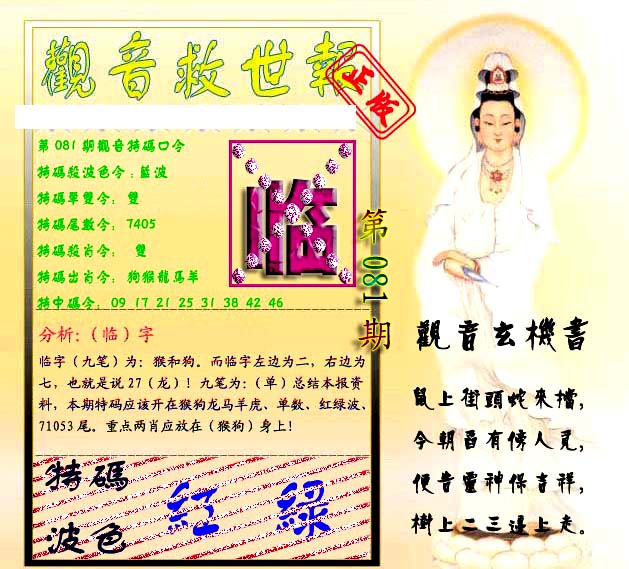 觀音救世報
正版
第081期觀音特碼口令
特碼殺波色令：藍波
特碼單雙令： 雙
特碼尾數令： 7405
特碼殺肖令： 雙
特碼出肖令： 狗猴龍馬羊
特中碼令： 09 17 21 25 31 38 42 46
临
第081期
分析：（临）字
临字（九笔）为：猴和狗。而临字左边为二，右边为
七，也就是说27（龙）！九笔为：（单）总结本报资
料，本期特码应该开在猴狗龙马羊虎、单数、红绿波、
71053尾。重点两肖应放在（猴狗）身上！
特碼
波色
紅 綠
觀音玄機書
鼠上街頭蛇來擋，
今朝因有傍人見，
便音靈神保吉祥，
樹上二三邊上走。